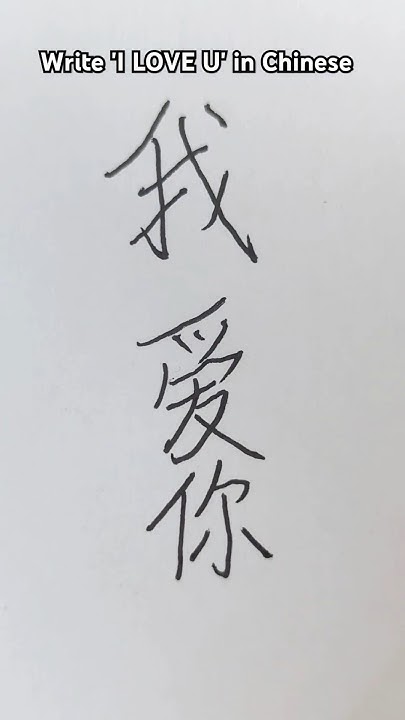 Write 'I LOVE U' in Chinese
我
爱
你